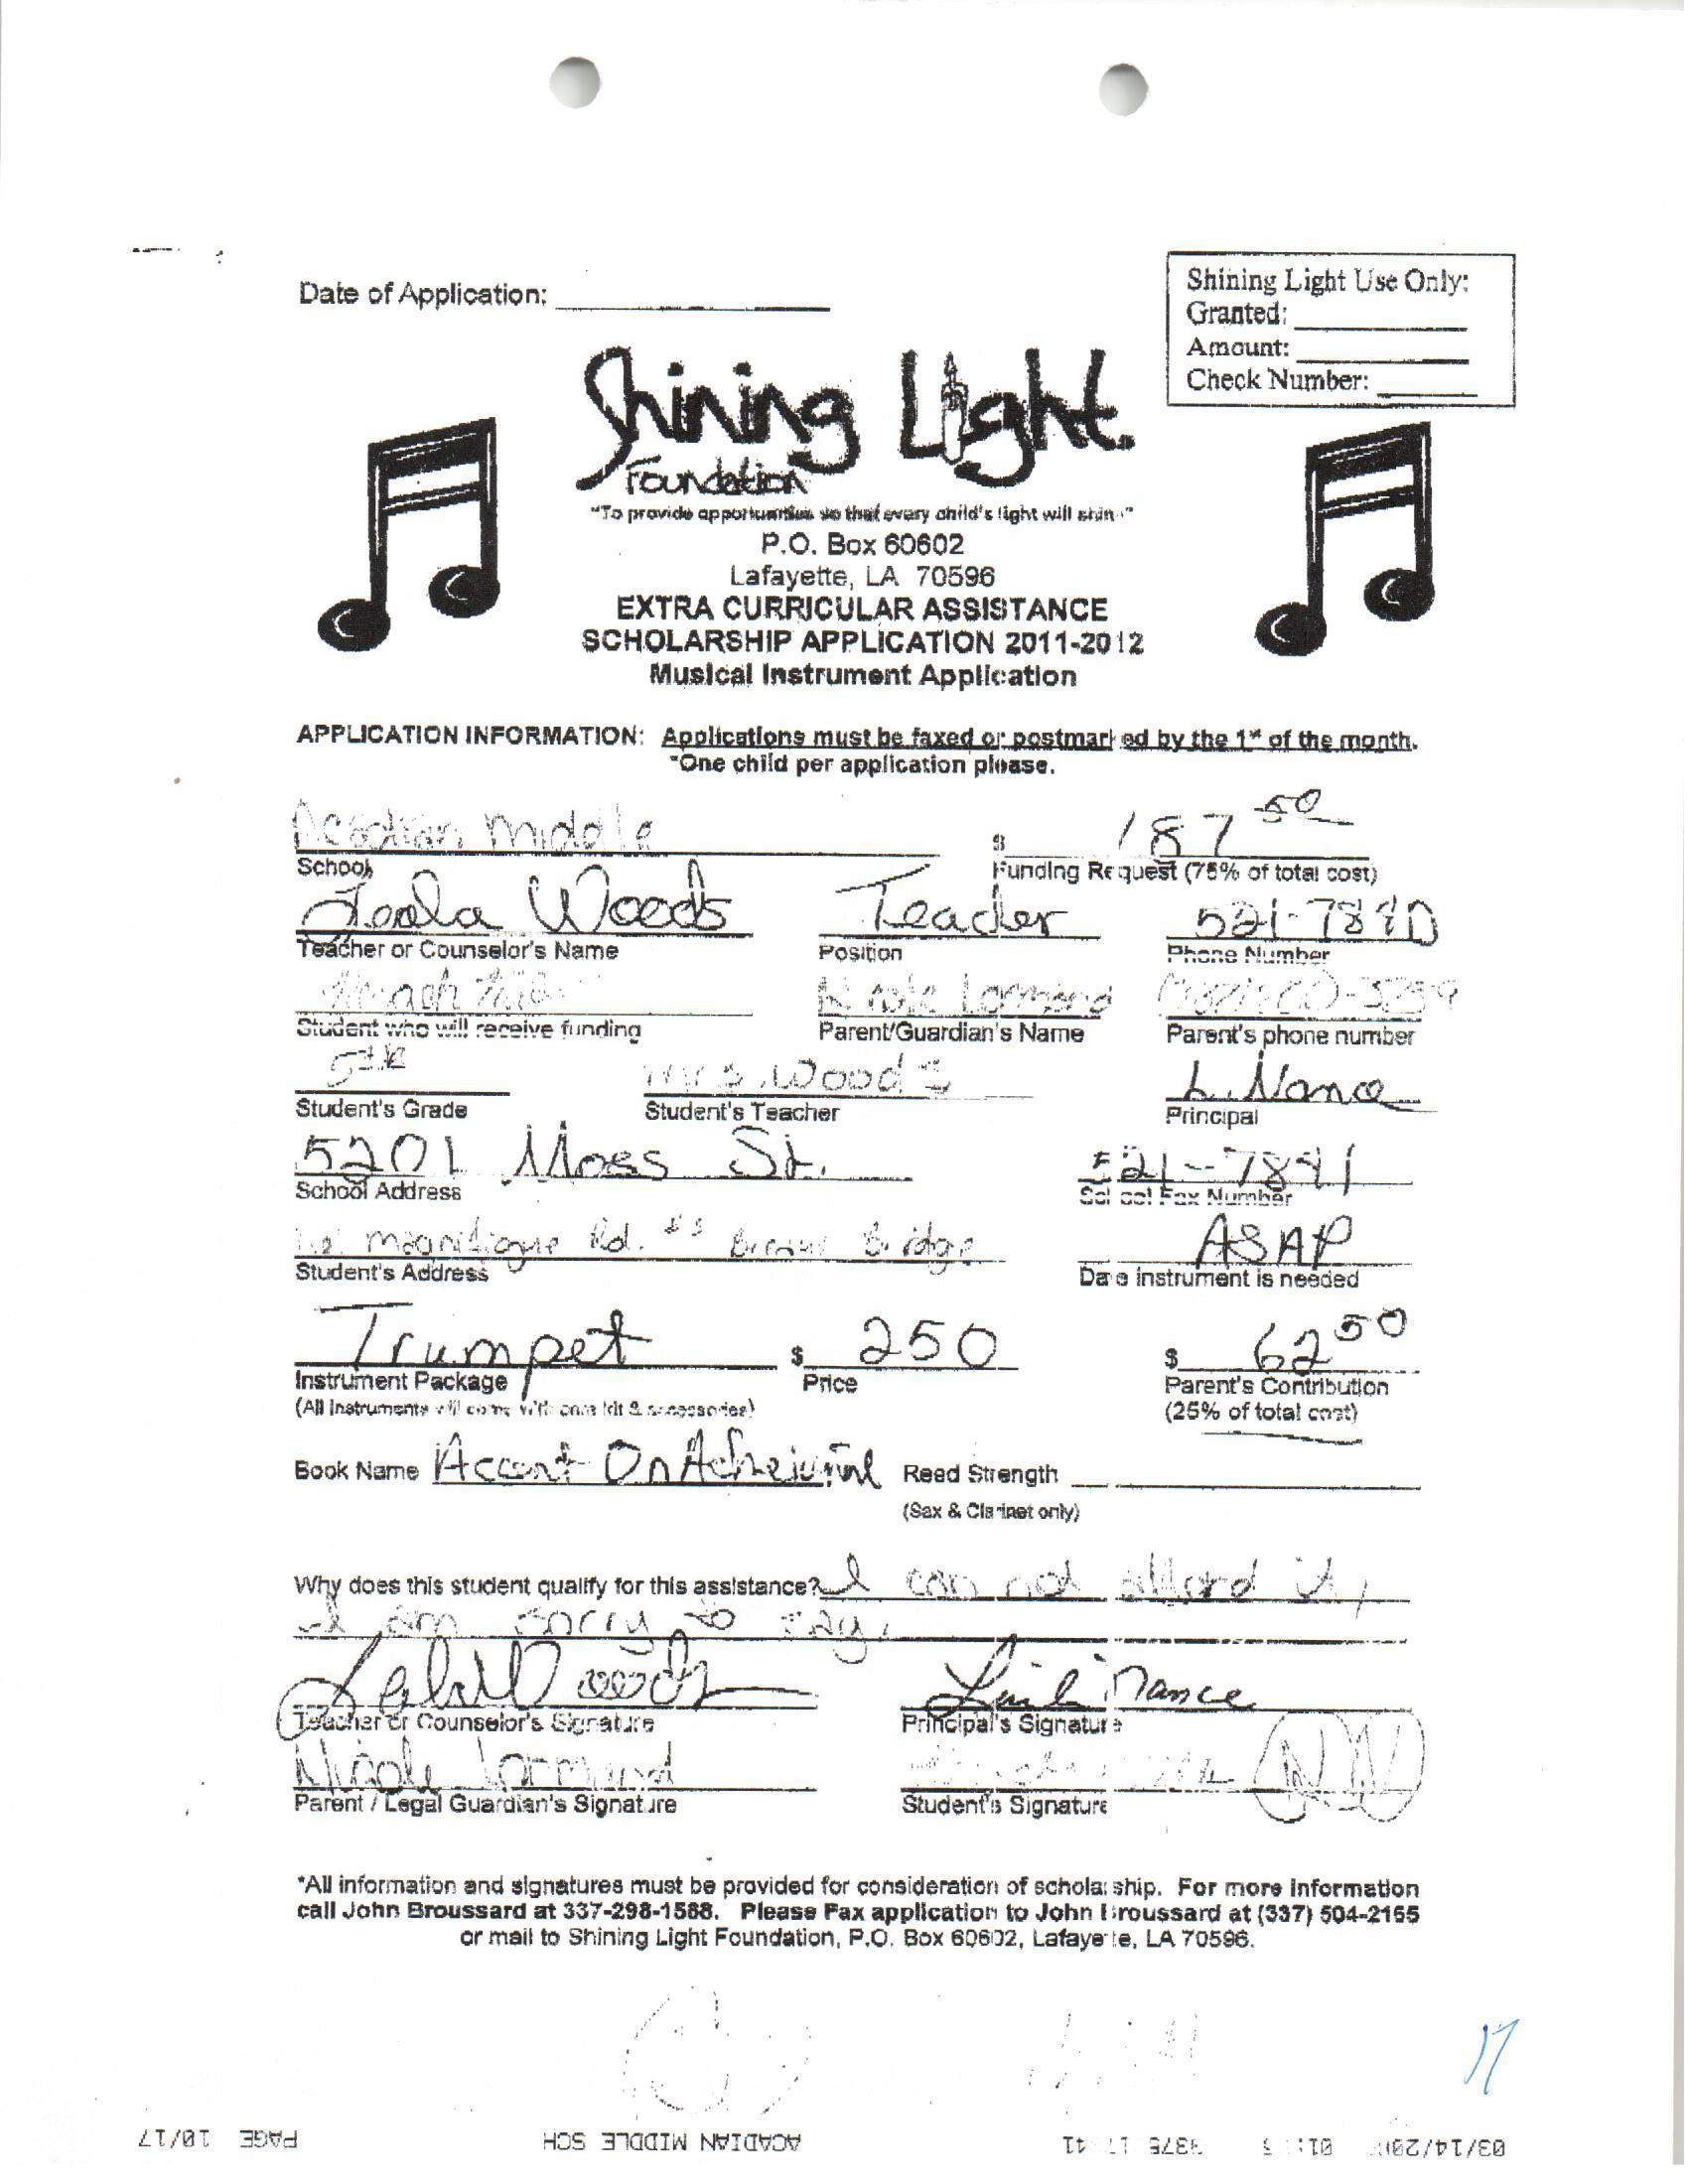 Date of Application:
Shining Light Use Only:
Granted:
Amount:
Check Number:
Shining Light
Foundation
"To provide opportunities so that every child's light will shine"
P.O. Box 60602
Lafayette, LA 70596
EXTRA CURRICULAR ASSISTANCE
SCHOLARSHIP APPLICATION 2011-2012
Musical Instrument Application
APPLICATION INFORMATION: Applications must be faxed or postmarked by the 1st of the month.
*One child per application please.
Acadian Middle $ 187 50
School Funding Request (75% of total cost)
Woods Teacher 521-7880
Teacher or Counselor's Name Position Phone Number
Nicole Lormand
Student who will receive funding Parent/Guardian's Name Parent's phone number
5th Mrs. Woods L. Nance
Student's Grade Student's Teacher Principal
5201 Moss St. 521-7881
School Address School Fax Number
magnifique Rd. #3 Breaux Bridge ASAP
Student's Address Date instrument is needed
Trumpet $ 250 $ 62 50
Instrument Package Price Parent's Contribution
(All instruments will come with care kit & accessories) (25% of total cost)
Book Name Accent On Acheivment Reed Strength
(Sax & Clarinet only)
Why does this student qualify for this assistance? I can not afford it,
I am sorry to say.
Woods Nance
Teacher or Counselor's Signature Principal's Signature
Nicole Lormand
Parent / Legal Guardian's Signature Student's Signature
*All information and signatures must be provided for consideration of scholarship. For more information
call John Broussard at 337-298-1588. Please Fax application to John Broussard at (337) 504-2165
or mail to Shining Light Foundation, P.O. Box 60602, Lafayette, LA 70596.
17
PAGE 10/17 ACADIAN MIDDLE SCH